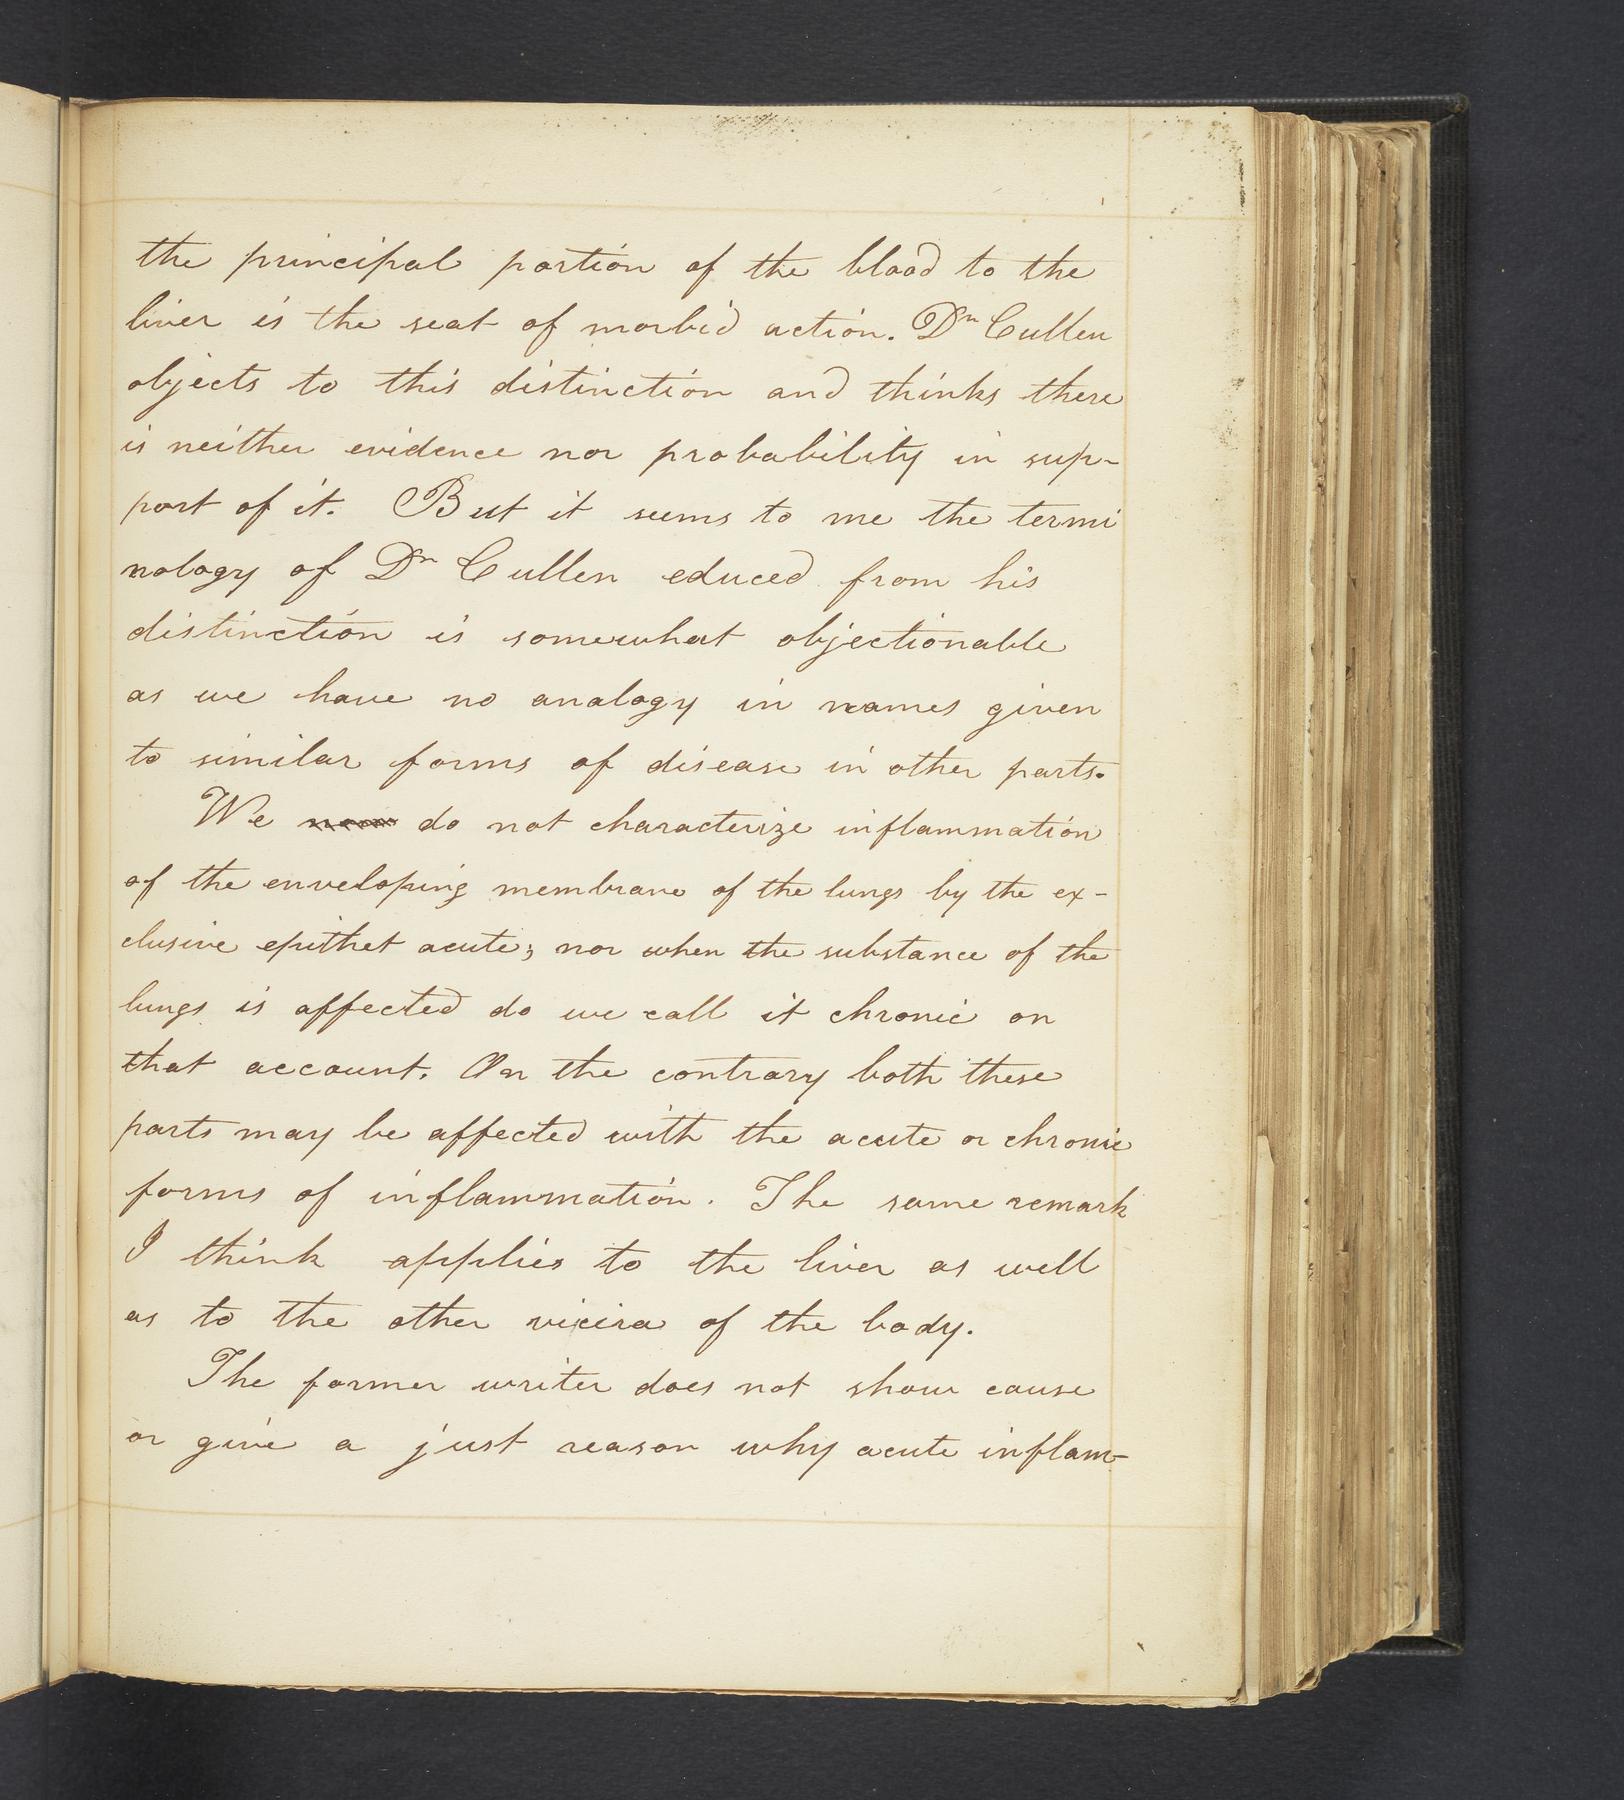 the principal portion of the blood to the
liver is the seat of morbid action. Dr Cullen
objects to this distinction and thinks there
is neither evidence nor probability in sup-
port of it. But it seems to me the termi
nology of Dr Cullen educed from his
distinction is somewhat objectionable
as we have no analogy in names given
to similar forms of disease in other parts.
We do not characterize inflammation
of the enveloping membrane of the lungs by the ex-
clusive epithet acute; nor when the substance of the
lungs is affected do we call it chronic on
that account. On the contrary both these
parts may be affected with the acute or chronic
forms of inflammation. The same remark
I think applies to the liver as well
as to the other viscira of the body.
The former writer does not show cause
or give a just reason why acute inflam-